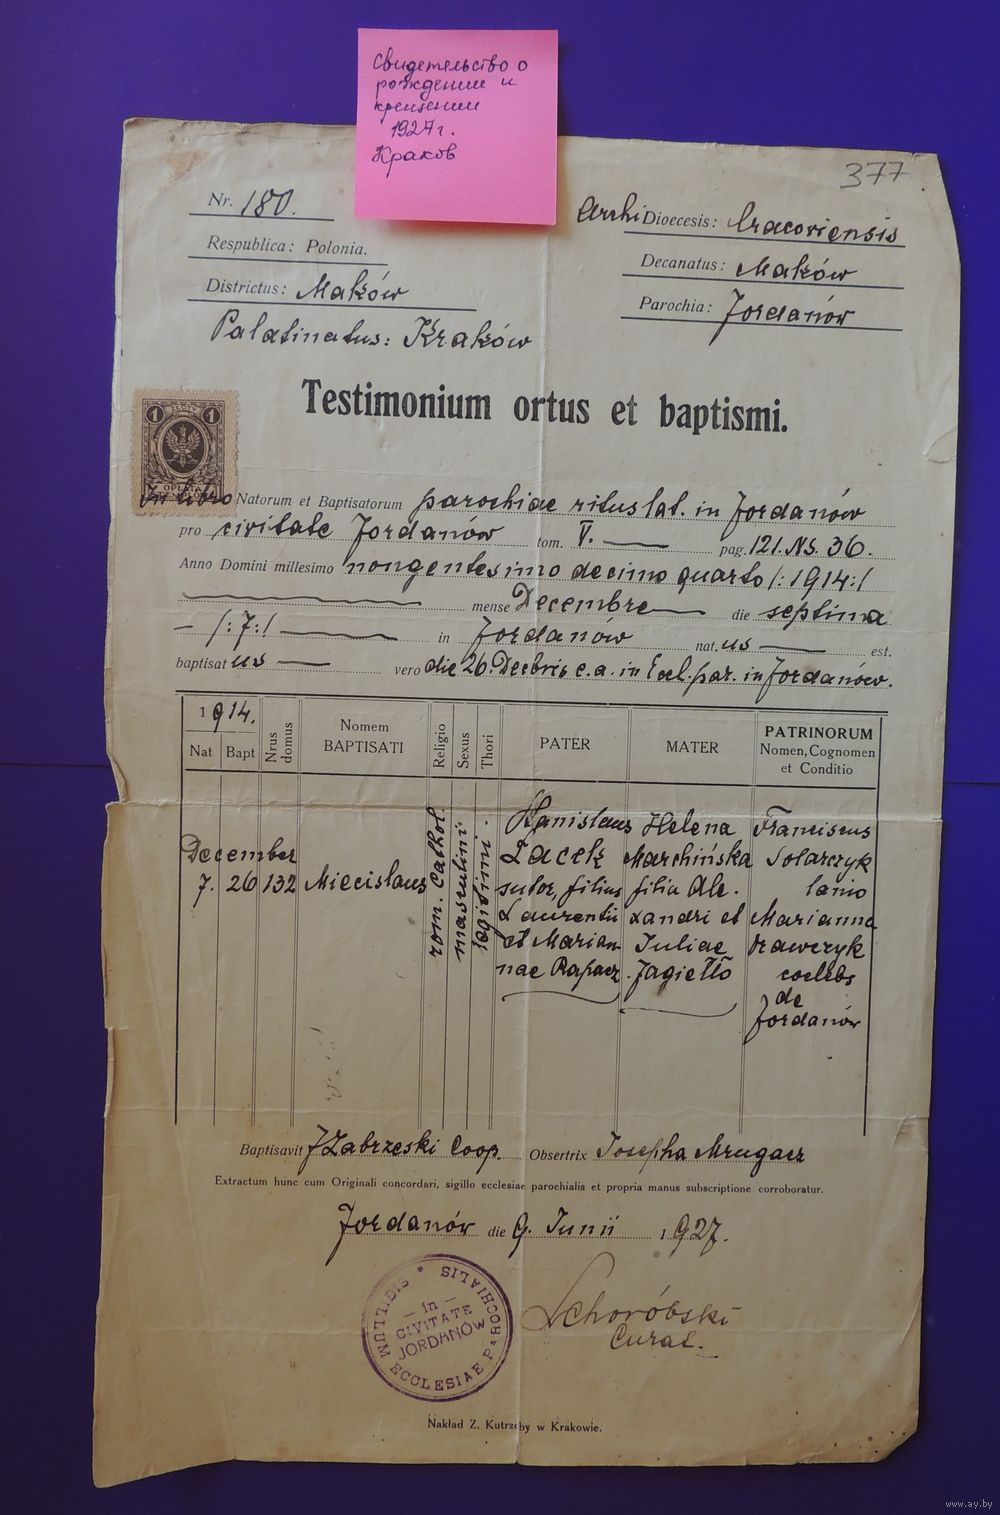 Свидетельство о
рождении и
крещении
1927 г.
Краков
377
Nr. 180.
Respublica: Polonia.
Districtus: Maków
Palatinatus: Kraków
Archi Dioecesis: Cracoviensis
Decanatus: Maków
Parochia: Jordanów
1 1
OPŁATA
Testimonium ortus et baptismi.
In libro Natorum et Baptisatorum parochiae ritus lat. in Jordanów
pro civitate Jordanów tom. V. pag. 121. NS. 36.
Anno Domini millesimo nongentesimo decimo quarto /:1914:/
mense Decembre die septima
/:7:/ in Jordanów nat. us est.
baptisat us vero die 26. Decbris e.a. in Eccl. par. in Jordanów.
1914.
Nat Bapt
Nrus domus
Nomem
BAPTISATI
Religio
Sexus
Thori
PATER
MATER
PATRINORUM
Nomen, Cognomen
et Conditio
December
7. 26 132 Miecislaus
rom. cathol.
masculini
legitimi.
Stanislaus
Żacek
sutor, filius
Laurentii
et Marian-
nae Rapacz
Helena
Marchińska
filia Ale-
xandri et
Juliae
Jagiełło
Franciscus
Solarczyk
lanio
Marianna
Krawczyk
coelebs
de
Jordanów
Baptisavit J Zabrzeski Coop. Obsertrix Josepha Mrugacz
Extractum hunc cum Originali concordari, sigillo ecclesiae parochialis et propria manus subscriptione corroboratur.
Jordanów die 9. Junii 1927.
SIGILLUM ECCLESIAE PAROCHIALIS
in
CIVITATE
JORDANÓW
Curat.
Nakład Z. Kutrzeby w Krakowie.
www.ay.by